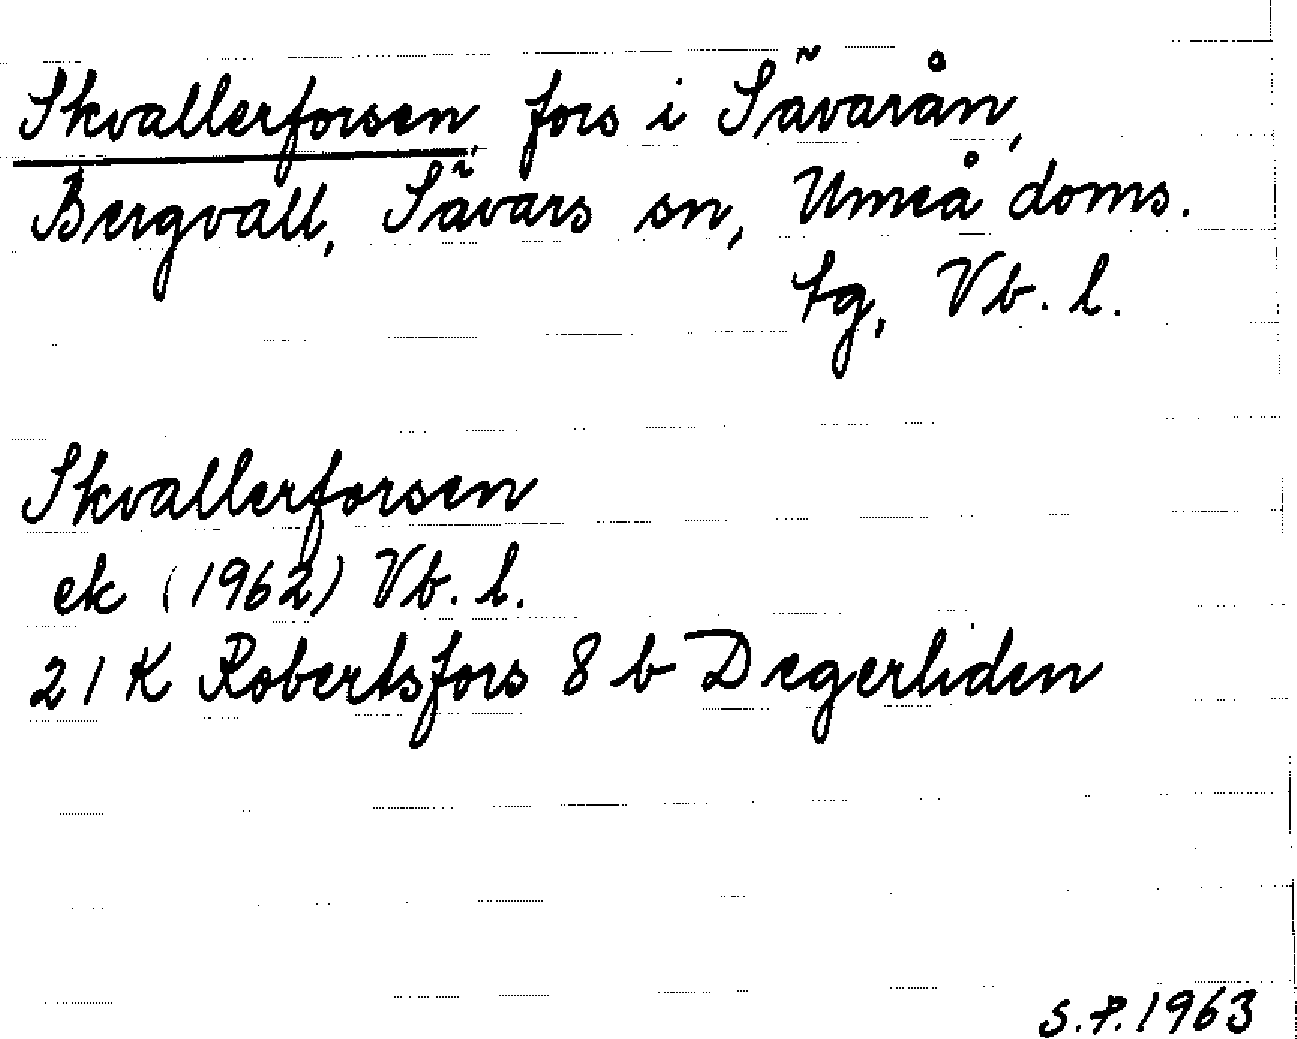 Skvallerforsen, fors i Sävarån,
Bergvall, Sävars sn, Umeå doms.
tg, Vb. l.
Skvallerforsen
ek (1962) Vb. l.
21 K Robertsfors 8 b Degerliden
S.P. 1963